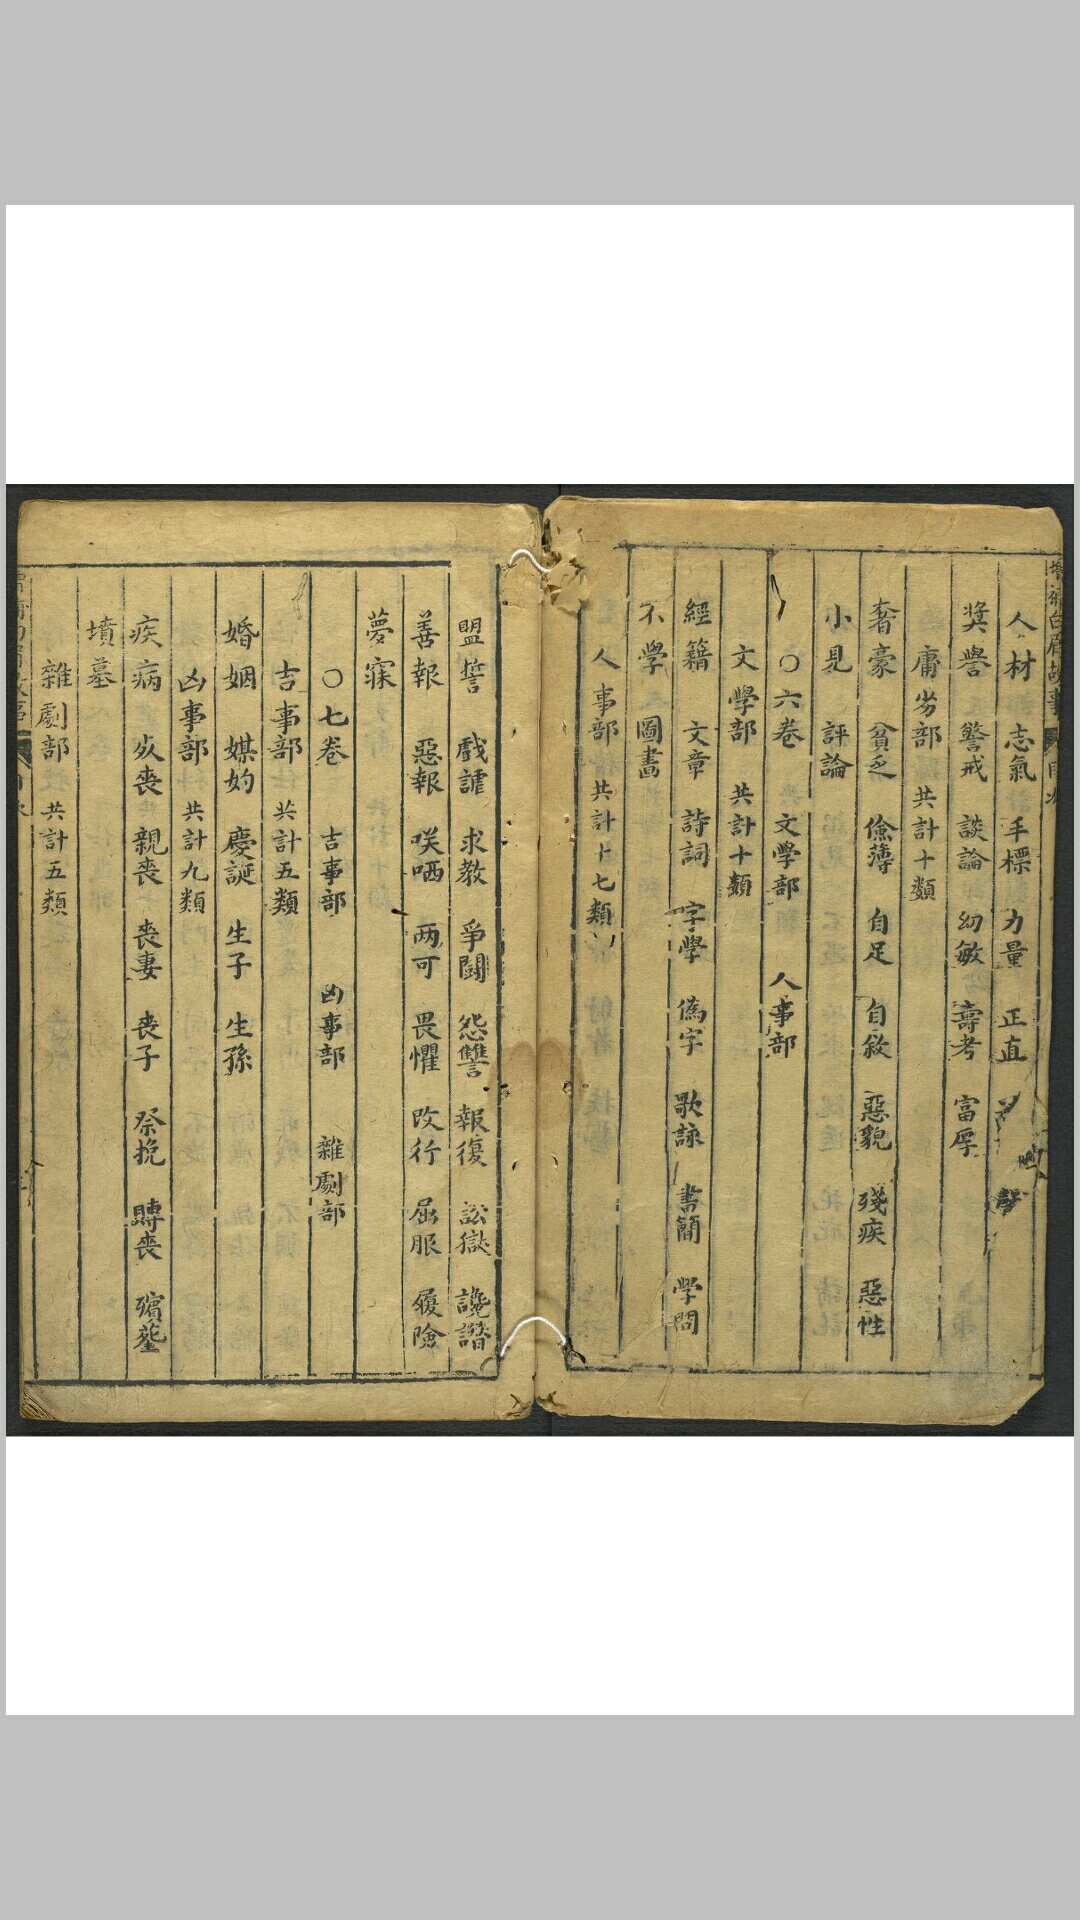 人材 志氣 手標 力量 正直
獎譽 警戒 談論 幼敏 壽考 富厚
庸劣部 共計十類
奢豪 貧乏 儉薄 自足 自敘 惡貌 殘疾 惡性
小見 評論
〇六卷 文學部 人事部
文學部 共計十類
經籍 文章 詩詞 字學 偽字 歌詠 書簡 學問
不學 圖畵
人事部 共計十七類
盟誓 戲謔 求教 爭闘 怨讐 報復 訟獄 讒譖
善報 惡報 咲哂 两可 畏懼 改行 屈服 履險
夢寐
〇七卷 吉事部 凶事部 雜劇部
吉事部 共計五類
婚姻 媒妁 慶誕 生子 生孫
凶事部 共計九類
疾病 父喪 親喪 喪妻 喪子 祭挽 賻喪 殯塟
墳墓
雜劇部 共計五類